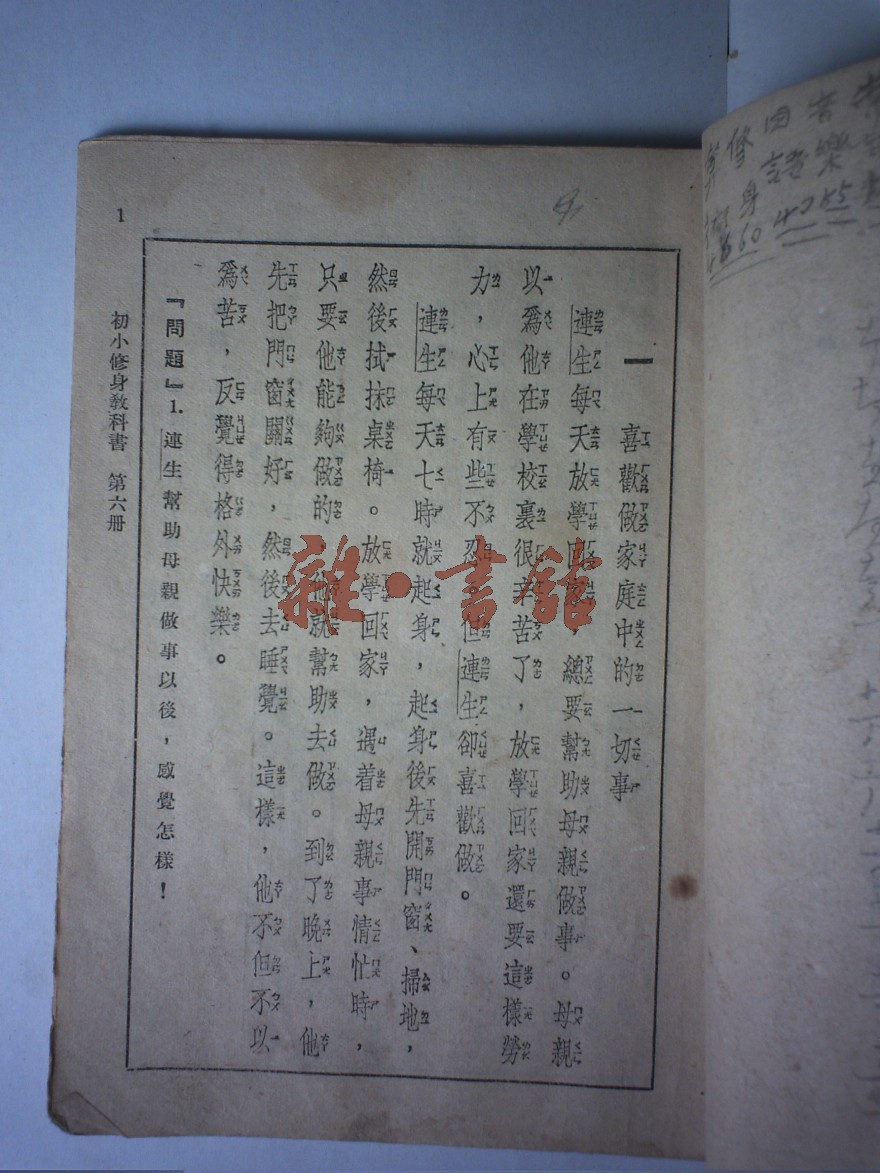 一　喜歡做家庭中的一切事
連生每天放學回家，總要幫助母親做事。母親
以爲他在學校裏很辛苦了，放學回家還要這樣勞
力，心上有些不忍。但連生卻喜歡做。
連生每天七時就起身，起身後先開門窗、掃地，
然後拭抹桌椅。放學回家，遇着母親事情忙時，
只要他能夠做的，他就幫助去做。到了晚上，他
先把門窗關好，然後去睡覺。這樣，他不但不以
爲苦，反覺得格外快樂。
『問題』1.連生幫助母親做事以後，感覺怎樣！
初小修身教科書　第六册
1
雜·書館
修身 60
音樂 85